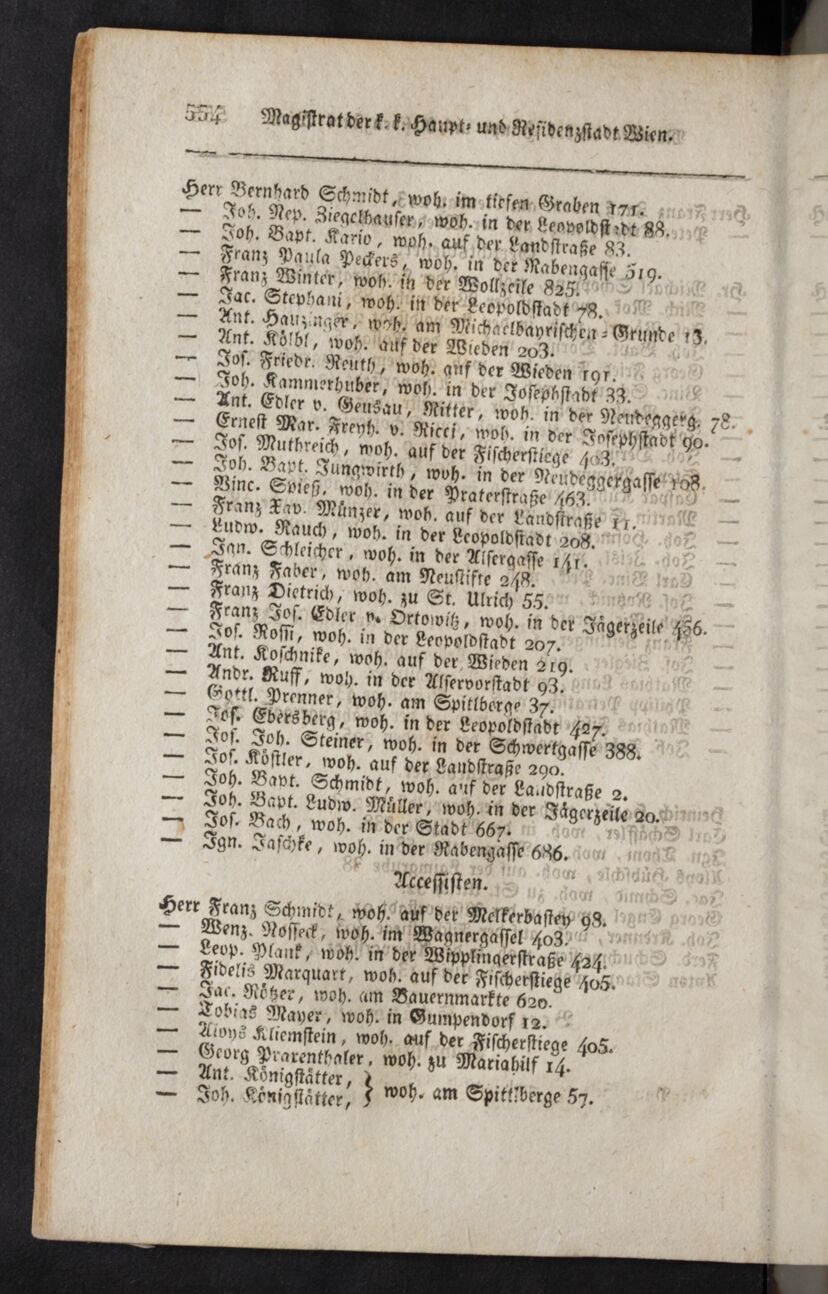 554 Magistrat der k. k. Haupt- und Residenzstadt Wien.
Herr Bernhard Schmidt, woh. im tiefen Graben 171.
— Joh. Nep. Ziegelhauser, woh. in der Leopoldstadt 88.
— Joh. Bapt. Kario, woh. auf der Landstraße 83.
— Franz Paula Peckers, woh. in der Rabengasse 519.
— Franz Winter, woh. in der Wollzeile 825.
— Jac. Stephani, woh. in der Leopoldstadt 78.
— Ant. Hauzinger, woh. am Michaelbayrischen-Grunde 13.
— Ant. Kölbl, woh. auf der Wieden 203.
— Jos. Friedr. Reuth, woh. auf der Wieden 191.
— Joh. Kammerhuber, woh. in der Josephstadt 33.
— Ant. Edler v. Geusau, Ritter, woh. in der Neudeggerg. 78.
— Ernest Mar. Freyh. v. Ricci, woh. in der Josephstadt 90.
— Jos. Muthreich, woh. auf der Fischerstiege 403.
— Joh. Bapt. Jungwirth, woh. in der Neudeggergasse 108.
— Vinc. Spieß, woh. in der Praterstraße 463.
— Franz Xav. Münzer, woh. auf der Landstraße 11.
— Ludw. Rauch, woh. in der Leopoldstadt 208.
— Ign. Schleicher, woh. in der Alsergasse 141.
— Franz Faber, woh. am Neustifte 248.
— Franz Dietrich, woh. zu St. Ulrich 55.
— Franz Jos. Edler v. Ortowitz, woh. in der Jägerzeile 456.
— Jos. Rossi, woh. in der Leopoldstadt 207.
— Ant. Koschnike, woh. auf der Wieden 219.
— Andr. Ruff, woh. in der Alservorstadt 93.
— Gottl. Prenner, woh. am Spitlberge 37.
— Jos. Ebersberg, woh. in der Leopoldstadt 427.
— Jos. Joh. Steiner, woh. in der Schwertgasse 388.
— Jos. Köstler, woh. auf der Landstraße 290.
— Joh. Bapt. Schmidt, woh. auf der Landstraße 2.
— Joh. Bapt. Ludw. Müller, woh. in der Jägerzeile 20.
— Jos. Bach, woh. in der Stadt 667.
— Ign. Jaschke, woh. in der Rabengasse 686.
Accessisten.
Herr Franz Schmidt, woh. auf der Melkerbastey 98.
— Wenz. Rosseck, woh. im Wagnergassel 403.
— Leop. Plank, woh. in der Wipplingerstraße 424.
— Fidelis Marquart, woh. auf der Fischerstiege 405.
— Jac. Rötzer, woh. am Bauernmarkte 620.
— Tobias Mayer, woh. in Gumpendorf 12.
— Aloys Kliemstein, woh. auf der Fischerstiege 405.
— Georg Praxenthaler, woh. zu Mariahilf 14.
— Ant. Königstätter, }
— Joh. Königstätter, } woh. am Spittlberge 57.